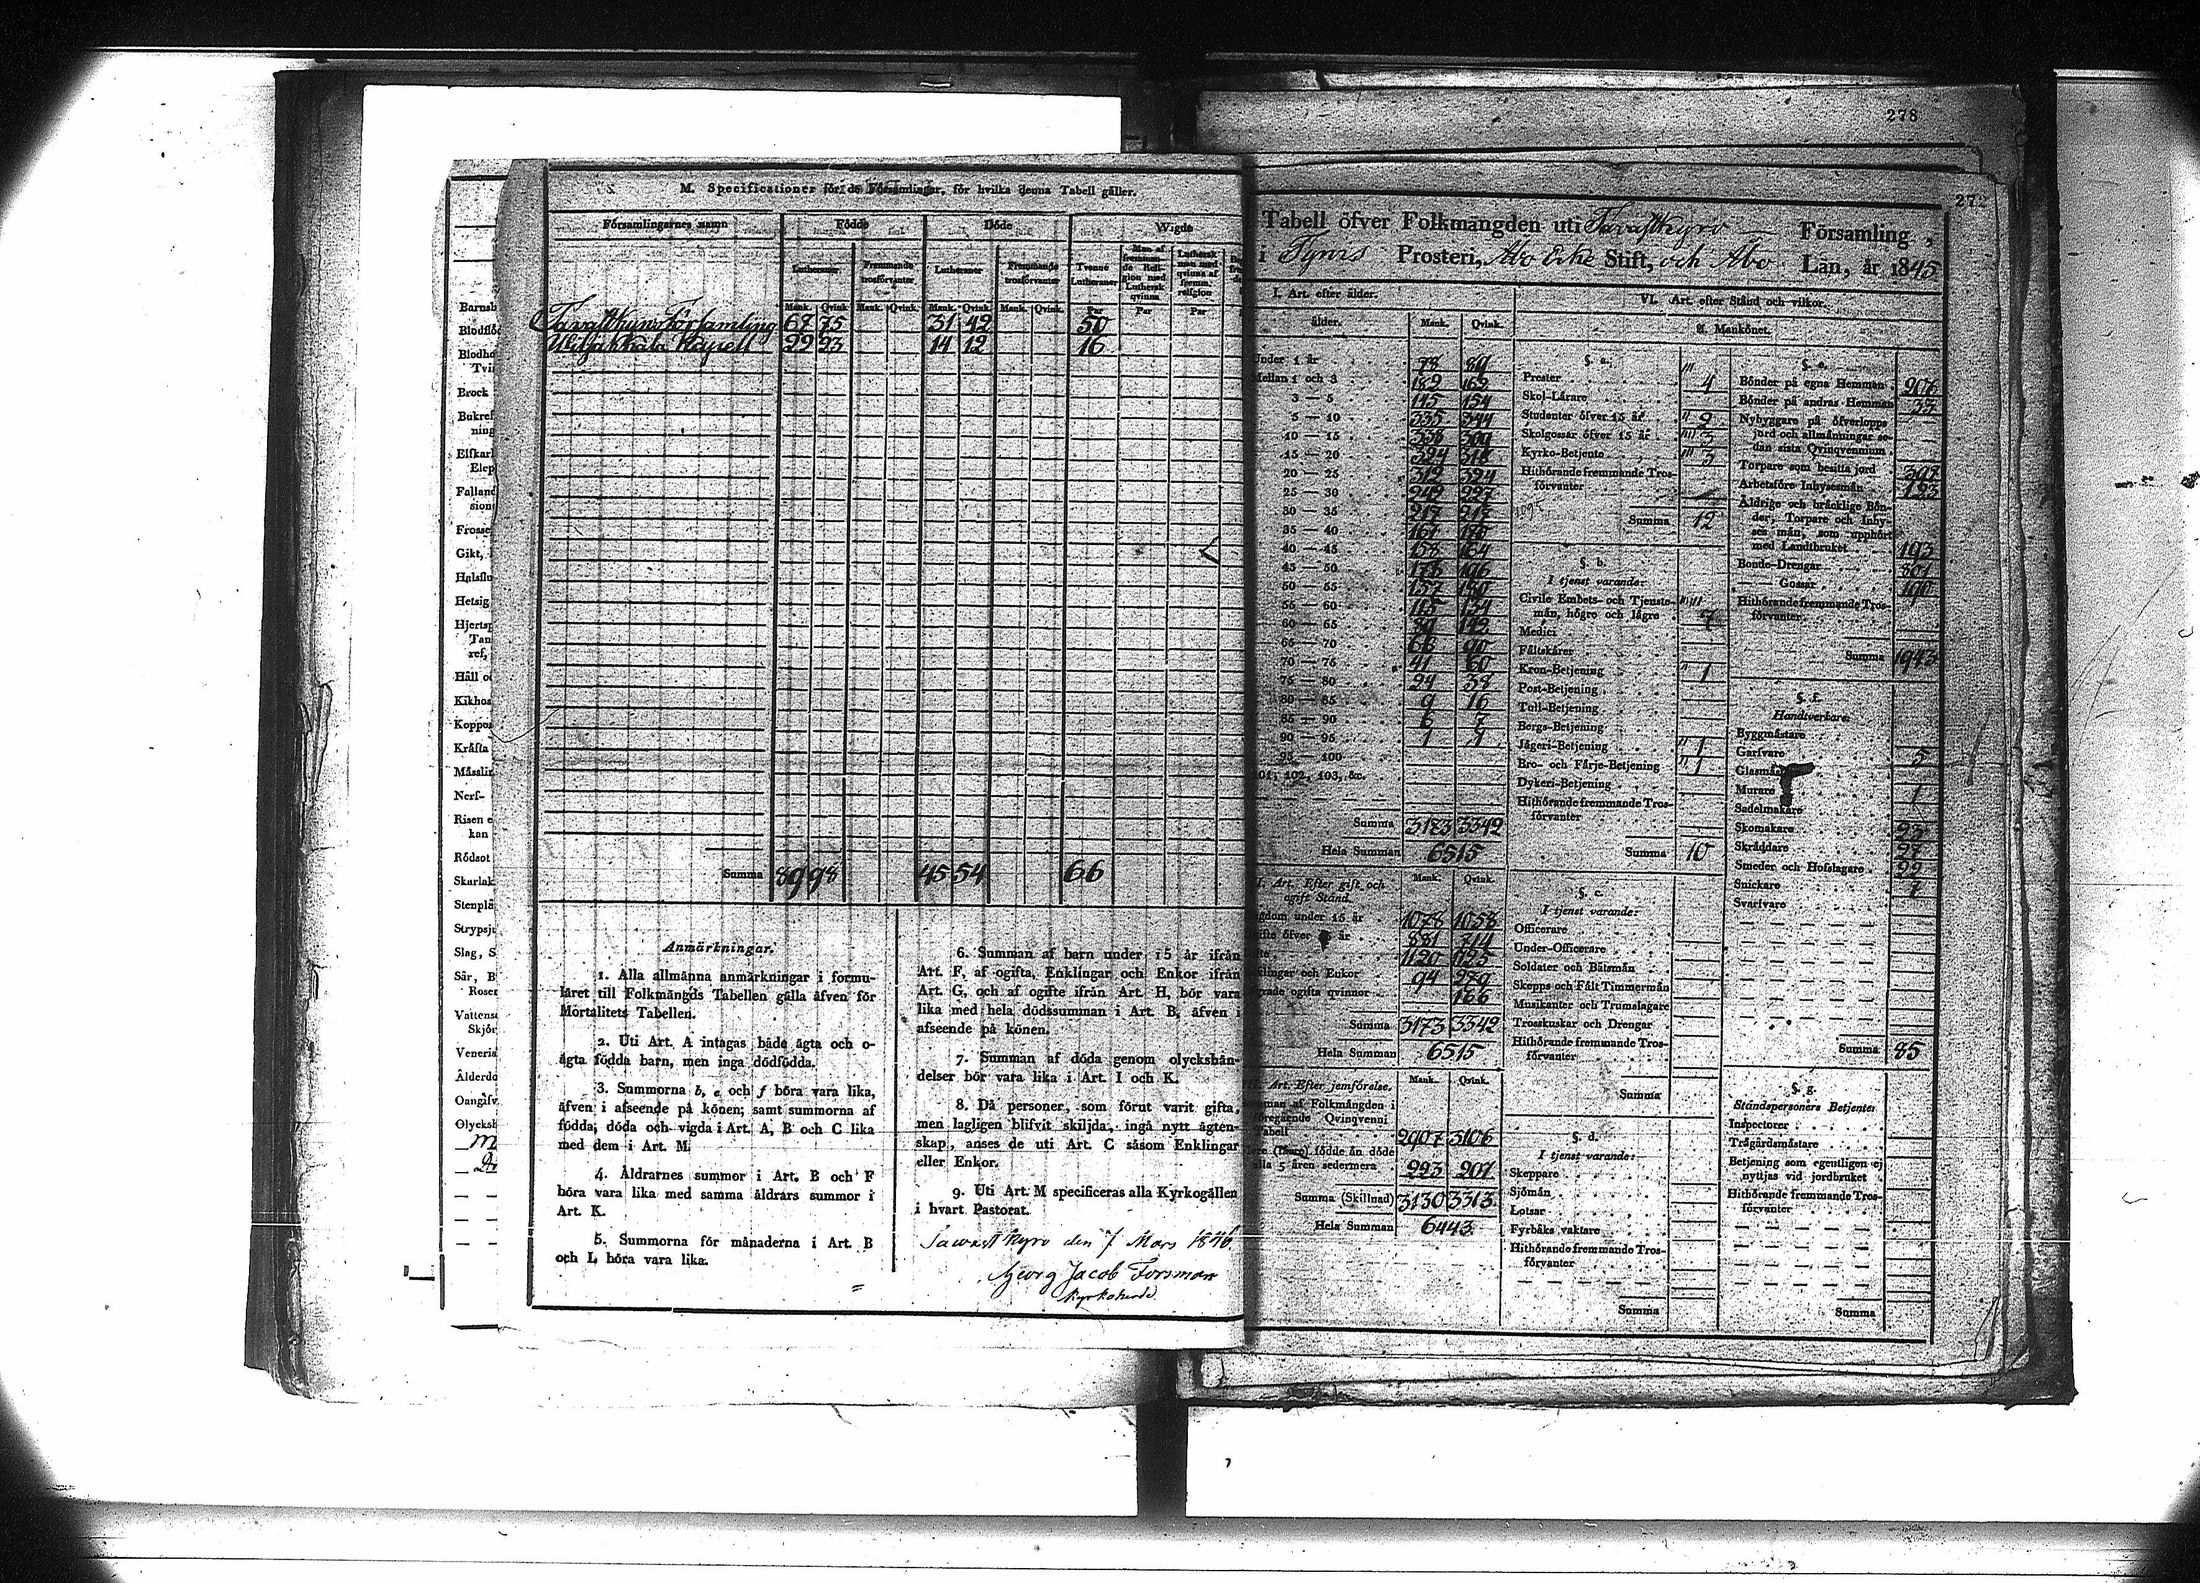 278
272
M. Specificationer för de Församlingar, för hvilka denna Tabell gäller.
Församlingarnes namn Födde Döde Wigde
Lutheraner Fremmande trosförvanter Lutheraner Fremmande trosförvanter Tvenne Lutheraner Man af fremmande Religion med Luthersk qvinna Luthersk man med qvinna af fremm. religion
Mank. Qvink. Mank. Qvink. Mank. Qvink. Mank. Qvink. Par Par Par
Tavastkyro Församling 67 75 31 42 50
Kapell 22 23 14 12 16
Summa 89 98 45 54 66
Anmärkningar.
1. Alla allmänna anmärkningar i formu-
läret till Folkmängds Tabellen gälla äfven för
Mortalitets Tabellen.
2. Uti Art. A intagas både ägta och o-
ägta födda barn, men inga dödfödda.
3. Summorna b, e och f böra vara lika,
äfven i afseende på könen; samt summorna af
födda, döda och vigda i Art. A, B och C lika
med dem i Art. M.
4. Åldrarnes summor i Art. B och F
böra vara lika med samma åldrars summor i
Art. K.
5. Summorna för månaderna i Art. B
och L böra vara lika.
6. Summan af barn under 15 år ifrån
Art. F, af ogifta, Enklingar och Enkor ifrån
Art. G, och af ogifte ifrån Art. H, bör vara
lika med hela dödssumman i Art. B, äfven i
afseende på könen.
7. Summan af döda genom olyckshän-
delser bör vara lika i Art. I och K.
8. Då personer, som förut varit gifta,
men lagligen blifvit skiljda, ingå nytt ägten-
skap, anses de uti Art. C såsom Enklingar
eller Enkor.
9. Uti Art. M specificeras alla Kyrkogällen
i hvart Pastorat.
Tawastkyro den 7 Mars 1846.
Georg Jacob Forsman
Kyrkoherde.
Tabell öfver Folkmängden uti Tavastkyro Församling,
i Tyrvis Prosteri, Åbo Erke Stift, och Åbo Län, år 1845
I. Art. efter ålder.
ålder. Mank. Qvink.
Under 1 år 78 89
Mellan 1 och 3 182 162
3 — 5 145 154
5 — 10 335 344
10 — 15 338 309
15 — 20 324 318
20 — 25 312 324
25 — 30 242 227
30 — 35 217 218
35 — 40 167 170
40 — 45 158 164
45 — 50 178 196
50 — 55 137 150
55 — 60 115 134
60 — 65 142
65 — 70 66 90
70 — 75 41 60
75 — 80 24 38
80 — 85 9 16
85 — 90 6 7
90 — 95 1 4
95 — 100
101, 102, 103, &c.
Summa 3173 3342
Hela Summan 6515
II. Art. Efter gift och ogift Stånd. Mank. Qvink.
under 15 år 1078 1058
öfver år 881 714
1120 1125
och Enkor 94 279
ogifta qvinnor 166
Summa 3173 3342
Hela Summan 6515
Art. Efter jemförelse. Mank. Qvink.
af Folkmängden i
Qvinqvenni
Tabell 2907 3106
födde än döde
5 åren sedermera 223 207
Summa (Skillnad) 3130 3313
Hela Summan 6443
VI. Art. efter Stånd och vilkor.
A. Mankönet.
§. a.
Prester 4
Skol-Lärare
Studenter öfver 15 år 2
Skolgossar öfver 15 år 3
Kyrko-Betjente 3
Hithörande fremmande Tros-
förvanter
Summa 12
§. b.
I tjenst varande:
Civile Embets- och Tjenste-
män, högre och lägre 7
Medici
Fältskärer
Kron-Betjening 1
Post-Betjening
Tull-Betjening
Bergs-Betjening
Jägeri-Betjening 1
Bro- och Färje-Betjening 1
Dykeri-Betjening
Hithörande fremmande Tros-
förvanter
Summa 10
§. c.
I tjenst varande:
Officerare
Under-Officerare
Soldater och Båtsmän
Skepps och Fält Timmermän
Musikanter och Trumslagare
Trosskuskar och Drengar
Hithörande fremmande Tros-
förvanter
Summa
§. d.
I tjenst varande:
Skeppare
Sjömän
Lotsar
Fyrbåks vaktare
Hithörande fremmande Tros-
förvanter
Summa
§. e.
Bönder på egna Hemman 206
Bönder på andras Hemman 33
Nybyggare på öfverlopps
jord och allmänningar se-
dan sista Qvinqvennium
Torpare som besitta jord 397
Arbetsföre Inhysesmän 123
Åldrige och bräcklige Bön-
der, Torpare och Inhy-
ses män, som upphört
med Landtbruket 193
Bonde-Drengar 801
Gossar 190
Hithörande fremmande Tros-
förvanter
Summa 1943
§. f.
Handtverkare:
Byggmästare
Garfvare 5
Glasmä
Murare 1
Sadelmakare
Skomakare 23
Skräddare 27
Smeder och Hofslagare 22
Snickare 7
Svarfvare
Summa 85
§. g.
Ståndspersoners Betjenter
Inspectorer
Trägårdsmästare
Betjening som egentligen ej
nyttjas vid jordbruket
Hithörande fremmande Tros-
förvanter
Summa